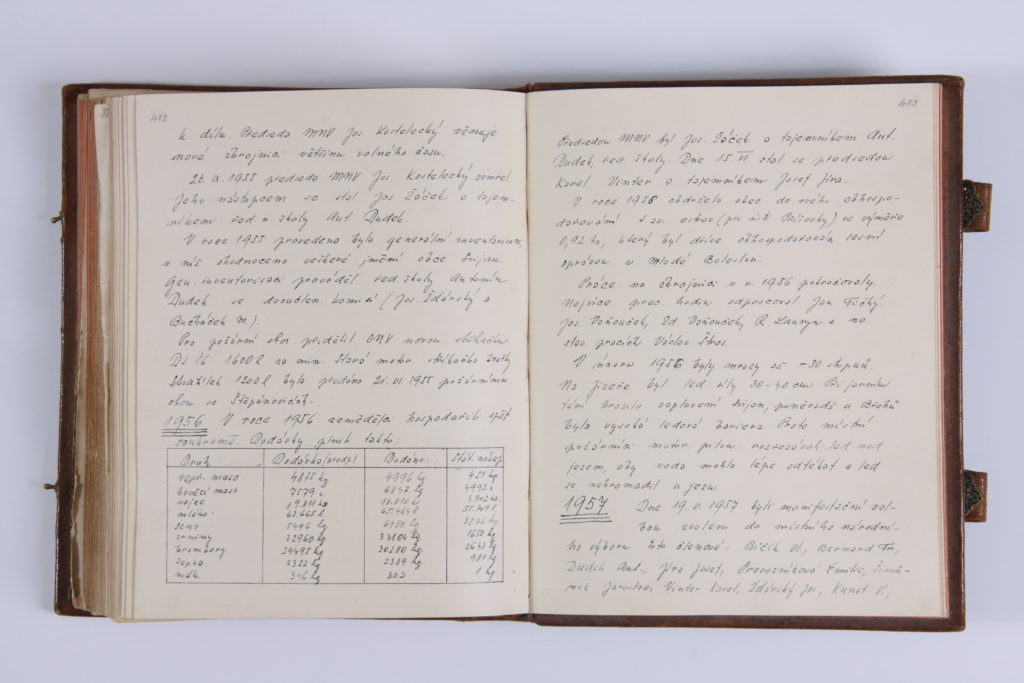 402
k dílu. Předseda MNV Jos. Kostelecký věnuje
nové zbrojnici většinu volného času.
25. IX. 1955 předseda MNV Jos. Kostelecký zemřel
Jeho nástupcem se stal Jos. Žáček a tajem-
níkem řed. n. školy Ant. Dudek.
V roce 1955 provedena byla generální inventarisace,
v níž ohodnoceno veškeré jmění obce Svijan.
Gen. inventarisaci prováděl řed. školy Antonín
Dudek se dvoučlen. komisí (Jos. Žďárský a
Bucháček M.).
Pro požární sbor přidělil ONV novou stříkačku
DS 16 1600 l za min. Stará motor. stříkačka značky
Stratílek 1200 l byla předána 21. VI. 1955 požárnímu
sboru ve Štěpánovicích.
1956 V roce 1956 zemědělci hospodařili opět
soukromě. Dodávky plnili takto:
Druh Dodávka (preds) Dodáno: Stát. nákup
vepř. maso 4815 kg 4996 kg 451 kg
hovězí maso 7579 " 6842 kg 4992 "
vejce 19.811 kg 18.810 4.902
mléko 63.665 l 65.464 l 55.749 l
seno 5496 kg 6950 kg
zrniny 32960 kg 33104 kg 1650 kg
brambory 29495 kg 30280 kg 2643 kg
řepka 2322 kg 2339 kg 981 kg
mák 346 kg 302 1 kg
403
Předsedou MNV byl Jos. Žáček a tajemníkem Ant.
Dudek, řed. školy. Dne 15. VI stal se předsedou
Karel Vinter a tajemníkem Josef Jíra.
V roce 1956 obdržela obec do svého obhospo-
dařování t. zv. ostrov (při silt. Příšovky) ve výměře
0,92 ha, který byl dříve obhospodařován lesní
správou v Mladé Boleslavi.
Práce na zbrojnici v r. 1956 pokračovaly.
Nejvíce prac. hodin odpracoval Jan Tichý
Jos. Vaňouček, Zd. Vaňouček, R. Lauryn a na
stav. pracích Václav Štros.
V únoru 1956 byly mrazy až -30 stupňů.
Na Jizeře byl led silý 30-40 cm. Při jarním
tání hrozilo zaplavení Svijan, poněvadž u Břehů
byla vysoká ledová bariera. Proto místní
požárníci motor. pilou rozřezávali led nad
jezem, aby voda mohla lépe odtékat a led
se nehromadil u jezu.
1957 Dne 19. V. 1957 byli manifestační vol-
bou zvoleni do místního národní-
ho výboru tito členové: Bičík Vl., Bernard Fr.,
Dudek Ant., Jíra Josef, Provazníková Emilie, Šimů-
nek Jaroslav, Vinter Karel, Žďárský Jos., Kunst V.,